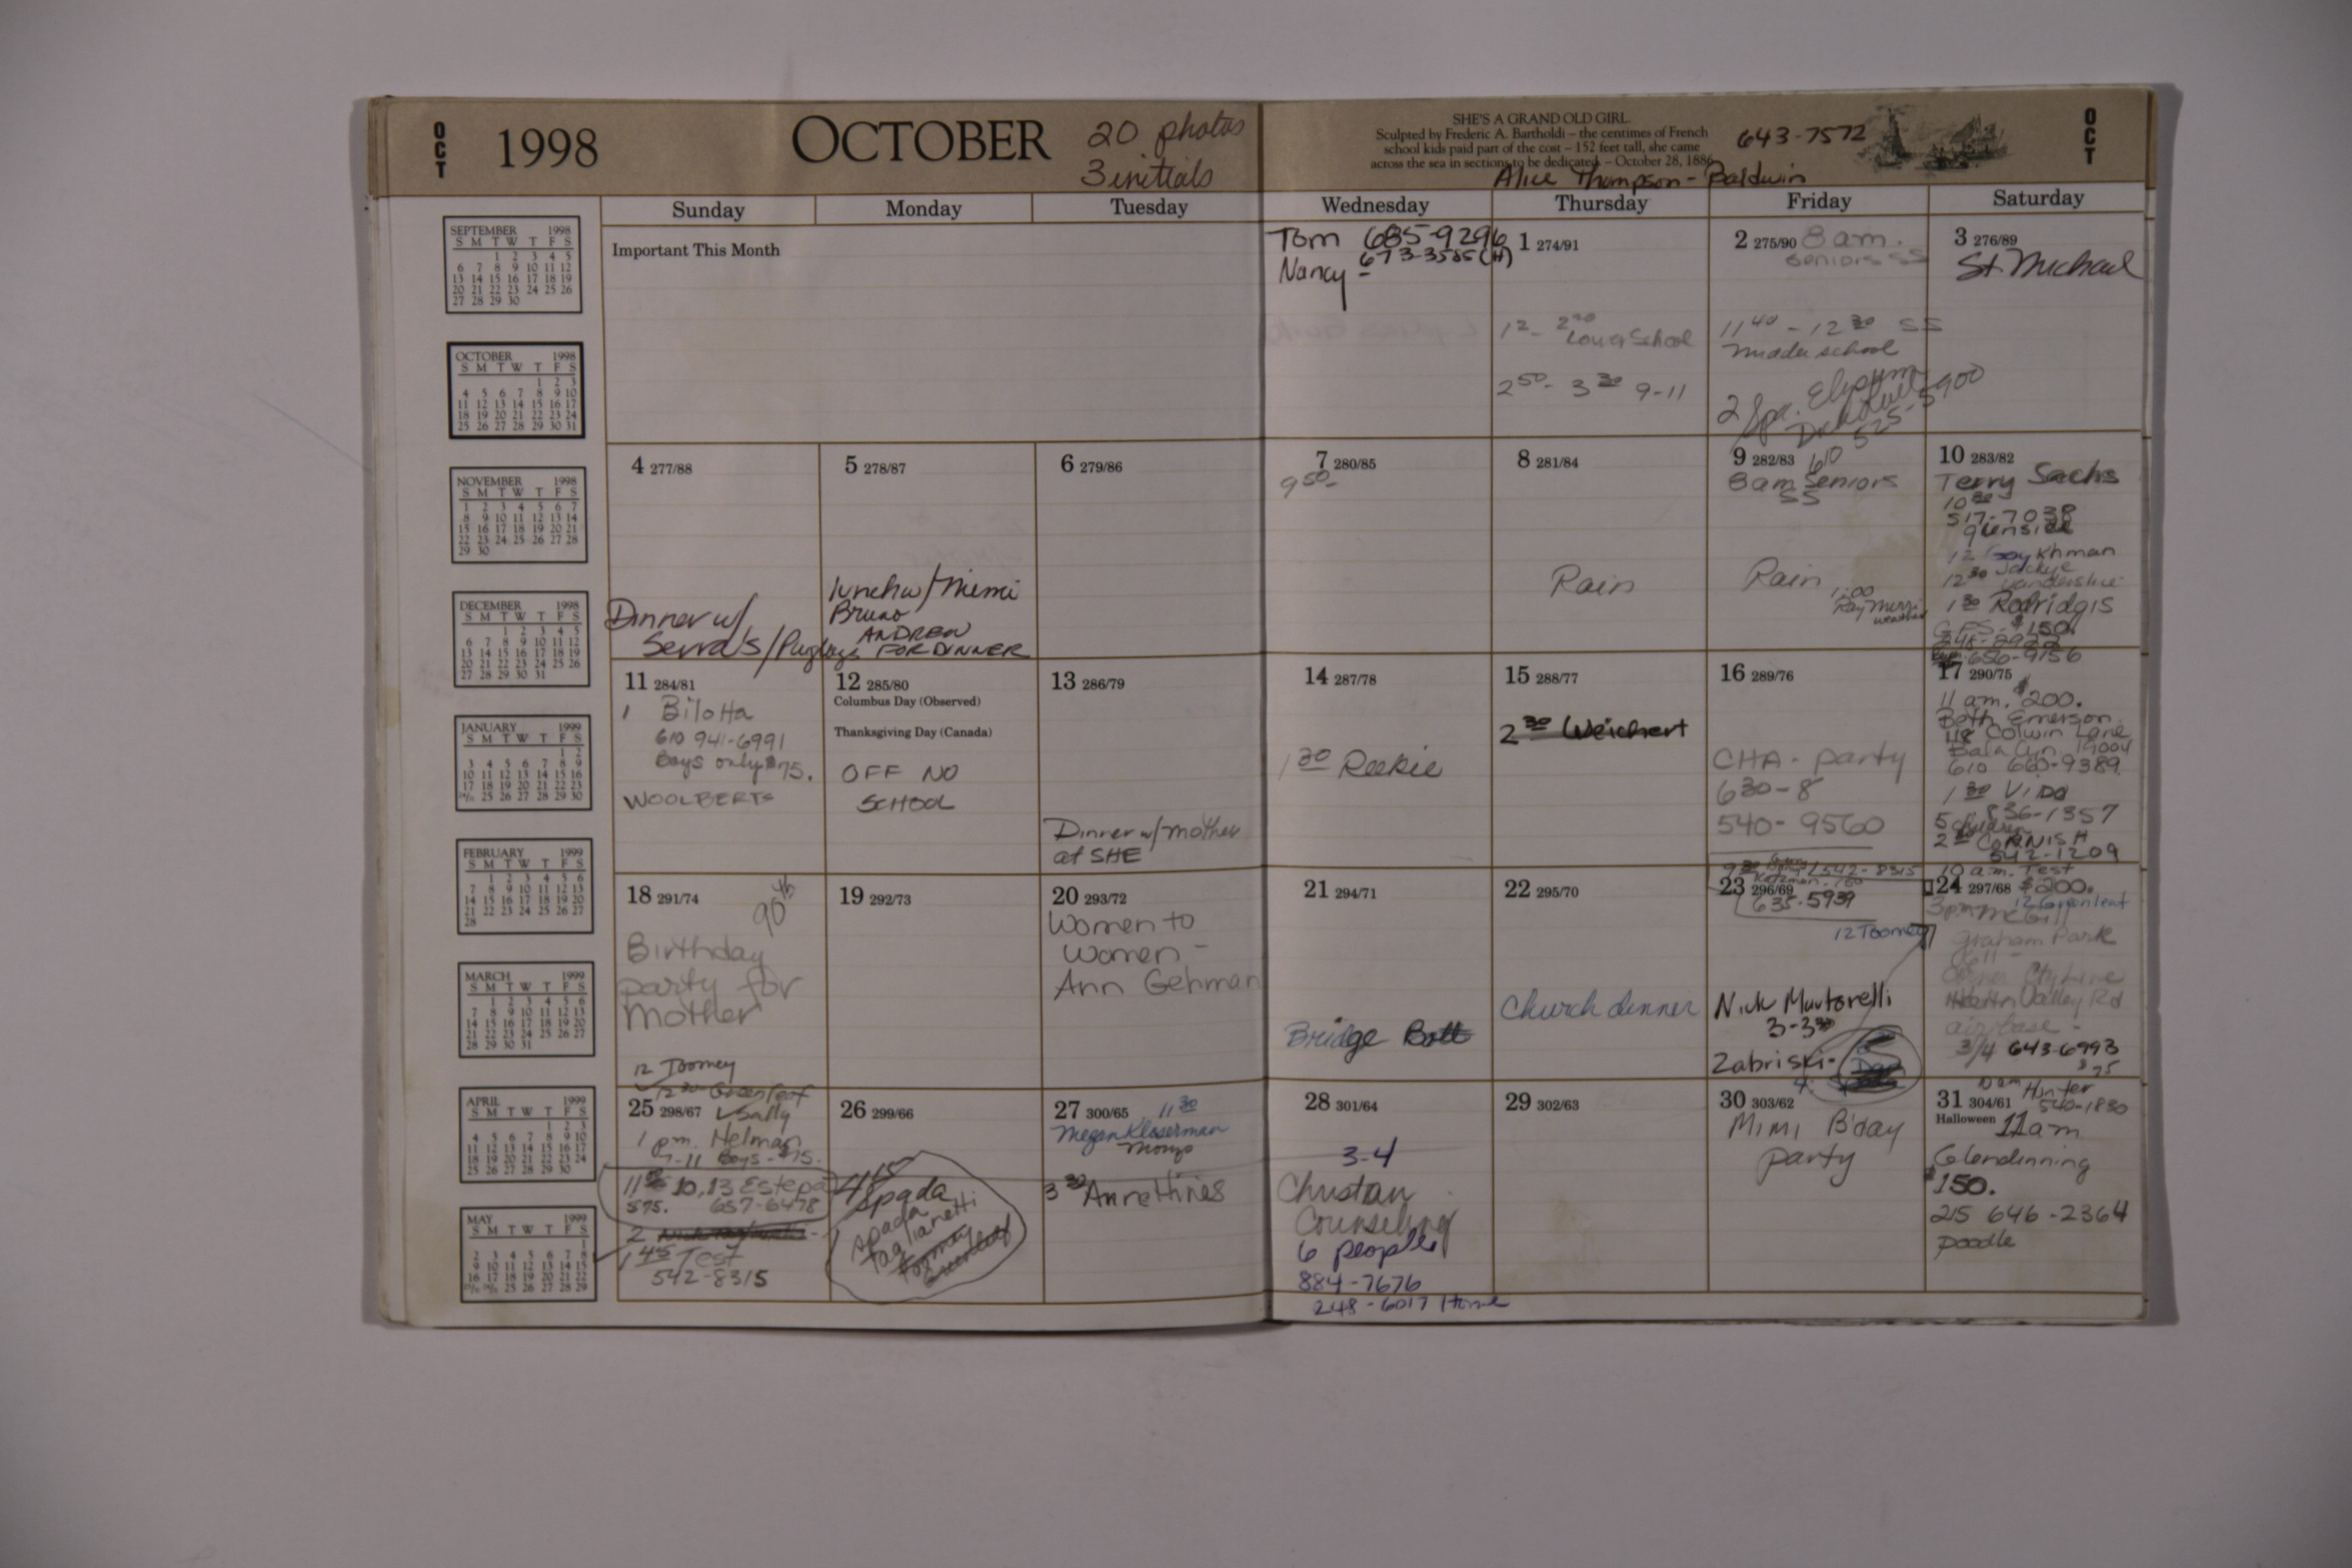 OCT
1998
OCTOBER
20 photos
3 initials
SHE'S A GRAND OLD GIRL
Sculpted by Frederic A. Bartholdi – the centimes of French
school kids paid part of the cost – 152 feet tall, she came
across the sea in sections to be dedicated. – October 28, 1886
643-7572
Alice Thompson-Baldwin
OCT
Sunday Monday Tuesday Wednesday Thursday Friday Saturday
SEPTEMBER 1998
S M T W T F S
1 2 3 4 5
6 7 8 9 10 11 12
13 14 15 16 17 18 19
20 21 22 23 24 25 26
27 28 29 30
OCTOBER 1998
S M T W T F S
1 2 3
4 5 6 7 8 9 10
11 12 13 14 15 16 17
18 19 20 21 22 23 24
25 26 27 28 29 30 31
NOVEMBER 1998
S M T W T F S
1 2 3 4 5 6 7
8 9 10 11 12 13 14
15 16 17 18 19 20 21
22 23 24 25 26 27 28
29 30
DECEMBER 1998
S M T W T F S
1 2 3 4 5
6 7 8 9 10 11 12
13 14 15 16 17 18 19
20 21 22 23 24 25 26
27 28 29 30 31
JANUARY 1999
S M T W T F S
1 2
3 4 5 6 7 8 9
10 11 12 13 14 15 16
17 18 19 20 21 22 23
24/31 25 26 27 28 29 30
FEBRUARY 1999
S M T W T F S
1 2 3 4 5 6
7 8 9 10 11 12 13
14 15 16 17 18 19 20
21 22 23 24 25 26 27
28
MARCH 1999
S M T W T F S
1 2 3 4 5 6
7 8 9 10 11 12 13
14 15 16 17 18 19 20
21 22 23 24 25 26 27
28 29 30 31
APRIL 1999
S M T W T F S
1 2 3
4 5 6 7 8 9 10
11 12 13 14 15 16 17
18 19 20 21 22 23 24
25 26 27 28 29 30
MAY 1999
S M T W T F S
1
2 3 4 5 6 7 8
9 10 11 12 13 14 15
16 17 18 19 20 21 22
23/30 24/31 25 26 27 28 29
Important This Month
Tom 685-9296
673-3585 (H)
Nancy -
1 274/91
12- 2
Lower School
2 50 - 3 30 9-11
2 275/90 8 am.
Seniors SS
11 40 - 12 30 SS
middle school
2 Spa. Elysium
525-5900
610
3 276/89
St. Michael
4 277/88
Dinner w/
Serra's/
5 278/87
lunch w/ Mimi
Bruno
ANDREW
FOR DINNER
6 279/86
7 280/85
9 50-
8 281/84
Rain
9 282/83
8 am Seniors
SS
Rain
1:00
Ray Merri
weather
10 283/82
Terry Sachs
10 30
517-7038
glenside
12
12 30 Jackye
1 30 Rodridgis
$150.
650-9156
11 284/81
1 Bilotta
610 941-6991
Boys only $75.
WOOLBERTS
12 285/80
Columbus Day (Observed)
Thanksgiving Day (Canada)
OFF NO
SCHOOL
13 286/79
Dinner w/ mother
at SHE
14 287/78
1 30 Reekie
15 288/77
2 30 Weichert
16 289/76
CHA - party
6 30 - 8
540-9560
17 290/75
11 am. $200.
Beth Emerson
118 Colwin Lane
Bala Cyn. 19004
610 660-9389
1 30 VIDA
836-1357
5 children
2 30 CORNISH
542-1209
18 291/74
90th
Birthday
party for
Mother
12 Toomey
12 30 Greenleaf
19 292/73
20 293/72
Women to
Women -
Ann Gehman
21 294/71
Bridge Bott
22 295/70
Church dinner
9 30 542-8315
23 296/69
635-5939
12 Toomey
Nick Martorelli
3-3 30
Zabriski-
10 a.m. Test
24 297/68 $200.
12 Greenleaf
3 pm McGill
Graham Park
airbase -
3/4 643-6993
$75
25 298/67 Sally
1 pm. Helman
7-11 Boys - $75.
11 10, 13 Estepa
$75. 657-6478
2
1 45 Test
542-8315
26 299/66
4 15
Spada
Spada
Taglianetti
Toomey
Greenleaf
27 300/65 11 30
Megan Kloserman
Moms
3 30 Annettines
28 301/64
3-4
Christian
Counseling
6 people
884-7676
248-6017 Home
29 302/63
30 303/62
Mimi B'day
party
10 am Hunter
540-1830
31 304/61
Halloween 11 am
Glendinning
$150.
215 646-2364
poodle